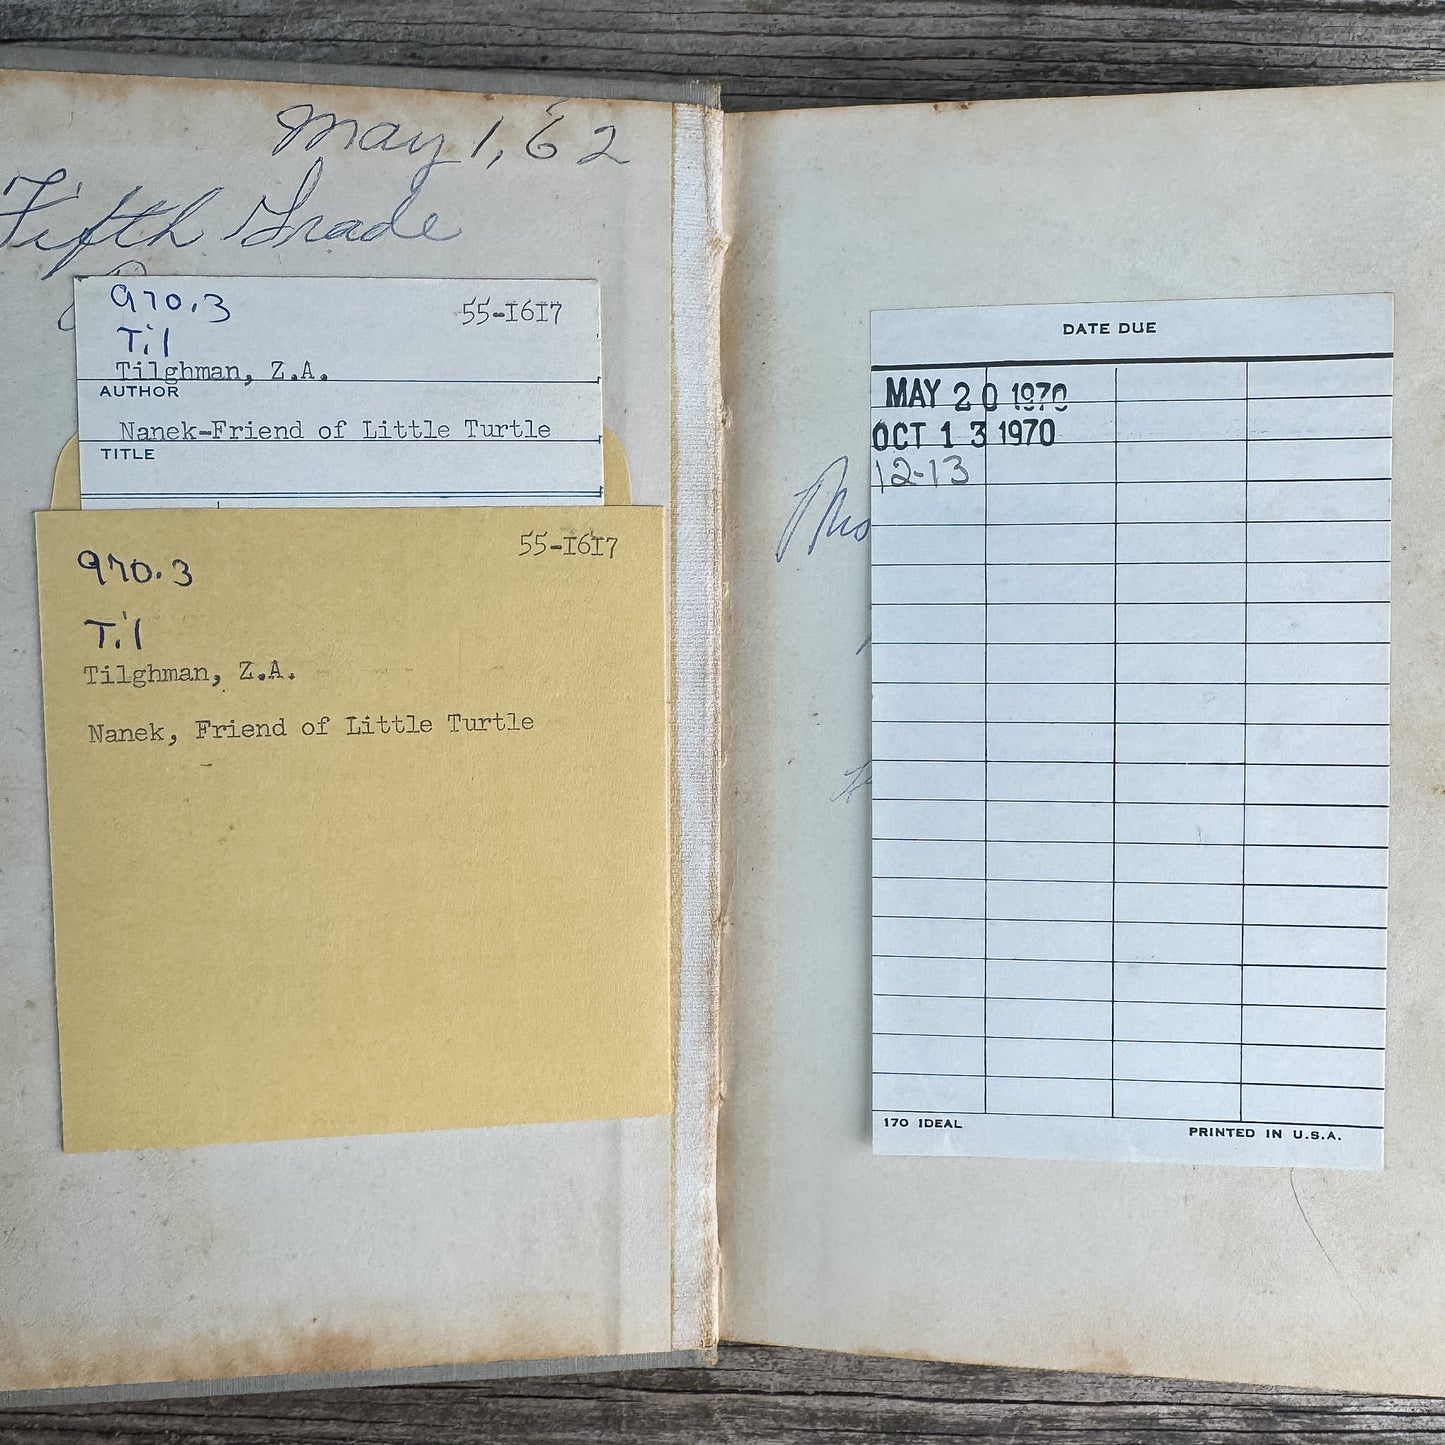 May 1, 62
Fifth Grade
970.3
55-1617
Til
Tilghman, Z.A.
AUTHOR
Nanek-Friend of Little Turtle
TITLE
55-1617
970.3
Til
Tilghman, Z.A.
Nanek, Friend of Little Turtle
DATE DUE
MAY 20 1970
OCT 13 1970
12-13
170 IDEAL
PRINTED IN U.S.A.